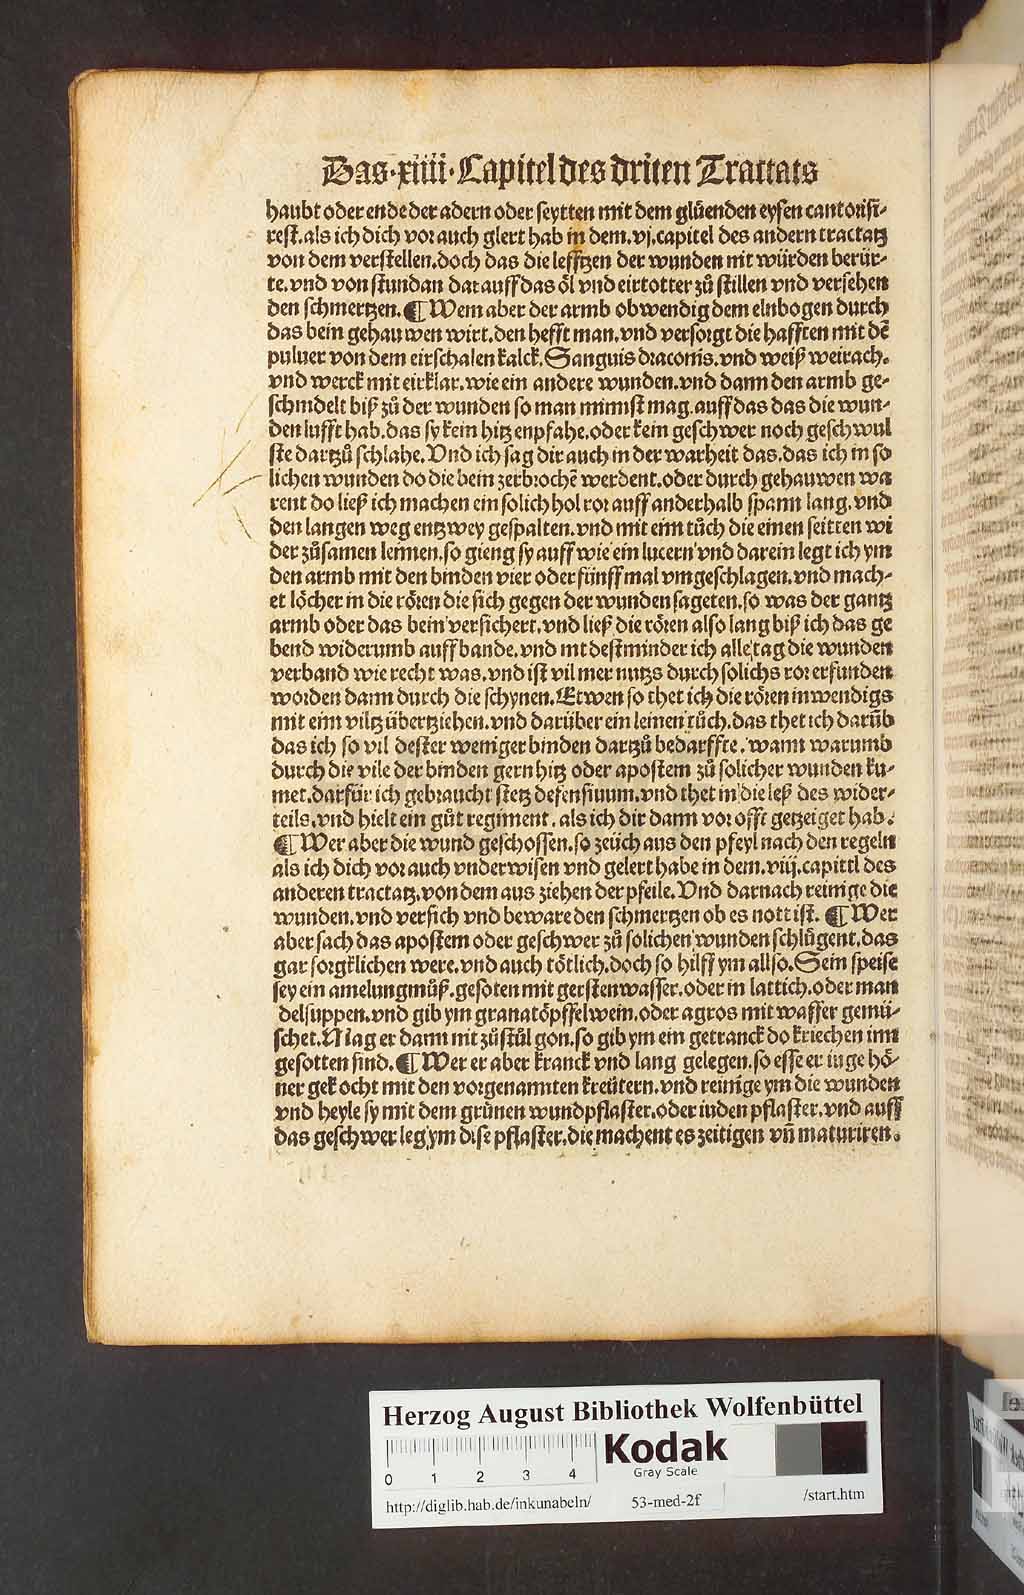 Das·xiiii·Capitel des driten Tractats
haubt oder ende der adern oder seytten mit dem glůenden eysen cantorisi-
rest.als ich dich vor auch glert hab in dem.vj.capitel des andern tractatz
von dem verstellen.doch das die lefftzen der wunden nit würden berür-
te.vnd von stundan darauff das öl vnd eirtotter zů stillen vnd versehen
den schmertzen.¶Wem aber der armb obwendig dem elnbogen durch
das bein gehauwen wirt.den hefft man.vnd versorgt die hafften mit dẽ
puluer von dem eirschalen kalck.Sanguis draconis.vnd weiß weirach.
vnd werck mit eirklar.wie ein andere wunden.vnd dann den armb ge-
schindelt biß zů der wunden so man minnst mag.auff das das die wun-
den lufft hab.das sy kein hitz enpfahe.oder kein geschwer noch geschwul
ste dartzů schlahe.Vnd ich sag dir auch in der warheit das.das ich in so
lichen wunden do die bein zerbrochẽ werdent.oder durch gehauwen wa
rent do ließ ich machen ein solich hol ror auff anderhalb spann lang.vnd
den langen weg entzwey gespalten.vnd mit eim tůch die einen seitten wi
der zůsamen leimen.so gieng sy auff wie ein lucern vnd darein legt ich ym
den armb mit den binden vier oder fünff mal vmgeschlagen.vnd mach-
et löcher in die rören die sich gegen der wunden sageten.so was der gantz
armb oder das bein versichert.vnd ließ die rören also lang biß ich das ge
bend widerumb auffbande.vnd nit destminder ich alle tag die wunden
verband wie recht was.vnd ist vil mer nutzs durch solichs ror erfunden
worden dann durch die schynen.Etwen so thet ich die rören inwendigs
mit eim viltz übertziehen.vnd darüber ein leinen tůch.das thet ich darũb
das ich so vil dester weniger binden dartzů bedarffte.wann warumb
durch die vile der binden gern hitz oder apostem zů solicher wunden ku-
met.darfür ich gebraucht stetz defensiuum.vnd thet in die leß des wider-
teils.vnd hielt ein gůt regiment.als ich dir dann vor offt getzeiget hab.
¶Wer aber die wund geschossen.so zeüch aus den pfeyl nach den regeln
als ich dich vor auch vnderwisen vnd gelert habe in dem.viij.capittl des
anderen tractatz.von dem aus ziehen der pfeile.Vnd darnach reinige die
wunden.vnd versich vnd beware den schmertzen ob es nott ist.¶Wer
aber sach das apostem oder geschwer zů solichen wunden schlůgent.das
gar sorgklichen were.vnd auch tötlich.doch so hilff ym allso.Sein speise
sey ein amelungmůß.gesoten mit gerstenwasser.oder in lattich.oder man
delsuppen.vnd gib ym granatöpffelwein.oder agros mit wasser gemü-
schet.Mag er dann nit zůstůl gon.so gib ym ein getranck do kriechen inn
gesotten sind.¶Wer er aber kranck vnd lang gelegen.so esse er iunge hö-
ner gekocht mit den vorgenannten kreütern.vnd reinige ym die wunden
vnd heyle sy mit dem grůnen wundpflaster.oder iuden pflaster.vnd auff
das geschwer leg ym dise pflaster.die machent es zeitigen vñ maturiren.
Herzog August Bibliothek Wolfenbüttel
0 1 2 3 4
Kodak
Gray Scale
http://diglib.hab.de/inkunabeln/ 53-med-2f /start.htm